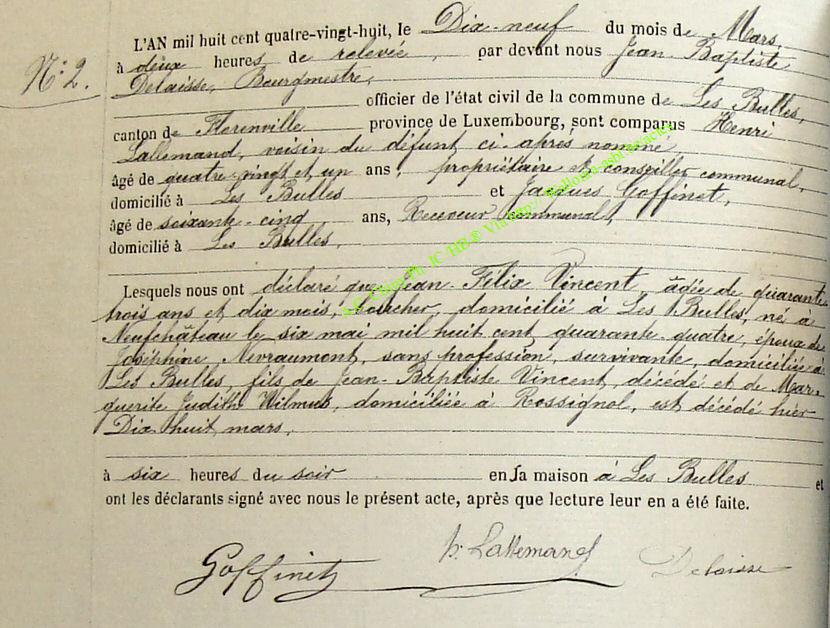 N° 2.
L'AN mil huit cent quatre-vingt-huit, le Dix-neuf du mois de Mars,
à deux heures de relevée, par devant nous Jean-Baptiste
Delaisse, Bourgmestre,
officier de l'état civil de la commune de Les Bulles,
canton de Florenville province de Luxembourg, sont comparus Henri
Lallemand, voisin du défunt ci-après nommé
âgé de quatre-vingt et un ans, propriétaire et conseiller communal,
domicilié à Les Bulles et Jacques Goffinet,
âgé de soixante-cinq ans, Receveur communal,
domicilié à Les Bulles,
Lesquels nous ont déclaré que Jean-Félix Vincent, âgée de quarante
trois ans et dix mois, boucher, domicilié à Les Bulles, né à
Neufchâteau le six mai mil huit cent quarante-quatre, époux de
Joséphine Nevraumont, sans profession, survivante, domiciliée à
Les Bulles, fils de Jean-Baptiste Vincent, décédé et de Mar-
guerite Judith Wilmus, domiciliée à Rossignol, est décédé hier
Dix huit mars,
à six heures du soir en sa maison à Les Bulles et
ont les déclarants signé avec nous le présent acte, après que lecture leur en a été faite.
Goffinet h. Lallemand Delaisse